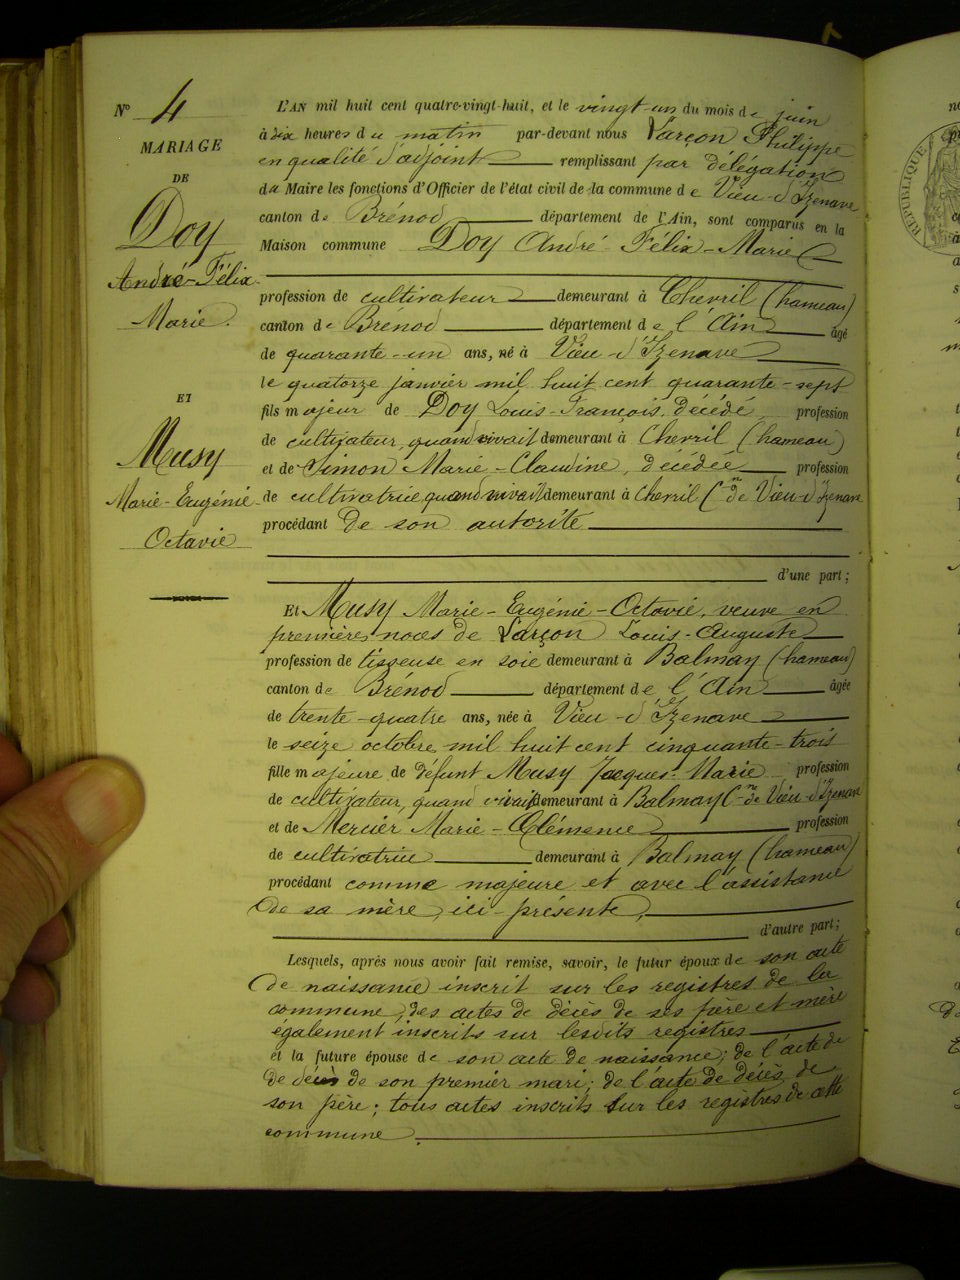 N° 4
MARIAGE
DE
Doy
André-Félix-
Marie.
ET
Musy
Marie-Eugénie-
Octavie
L'AN mil huit cent quatre-vingt-huit, et le vingt-un du mois de juin
à dix heures du matin par-devant nous Varçon Philippe
en qualité d'adjoint remplissant par délégation
du Maire les fonctions d'Officier de l'état civil de la commune de Vieu-d'Izenave
canton de Brénod département de l'Ain, sont comparus en la
Maison commune Doy André-Félix-Marie
profession de cultivateur demeurant à Chevril (hameau)
canton de Brénod département de l'Ain âgé
de quarante-un ans, né à Vieu-d'Izenave
le quatorze janvier mil huit cent quarante-sept
fils majeur de Doy Louis-François, décédé, profession
de cultivateur, quand vivait demeurant à Chevril (hameau)
et de Simon Marie-Claudine, décédée profession
de cultivatrice quand vivait demeurant à Chevril Cne de Vieu-d'Izenave
procédant de son autorité
d'une part;
Et Musy Marie-Eugénie-Octavie, veuve en
premières noces de Varçon Louis-Auguste
profession de tisseuse en soie demeurant à Balmay (hameau)
canton de Brénod département de l'Ain âgée
de trente-quatre ans, née à Vieu-d'Izenave
le seize octobre mil huit cent cinquante-trois
fille majeure de défunt Musy Jacques-Marie profession
de cultivateur, quand vivait demeurant à Balmay Cne de Vieu-d'Izenave
et de Mercier Marie-Clémence profession
de cultivatrice demeurant à Balmay (hameau)
procédant comme majeure et avec l'assistance
de sa mère, ici-présente,
d'autre part;
Lesquels, après nous avoir fait remise, savoir, le futur époux de son acte
de naissance inscrit sur les registres de la
commune, des actes de décès de ses père et mère
également inscrits sur lesdits registres
et la future épouse de son acte de naissance; de l'acte de
de décès de son premier mari; de l'acte de décès de
son père; tous actes inscrits sur les registres de cette
commune
RÉPUBLIQUE